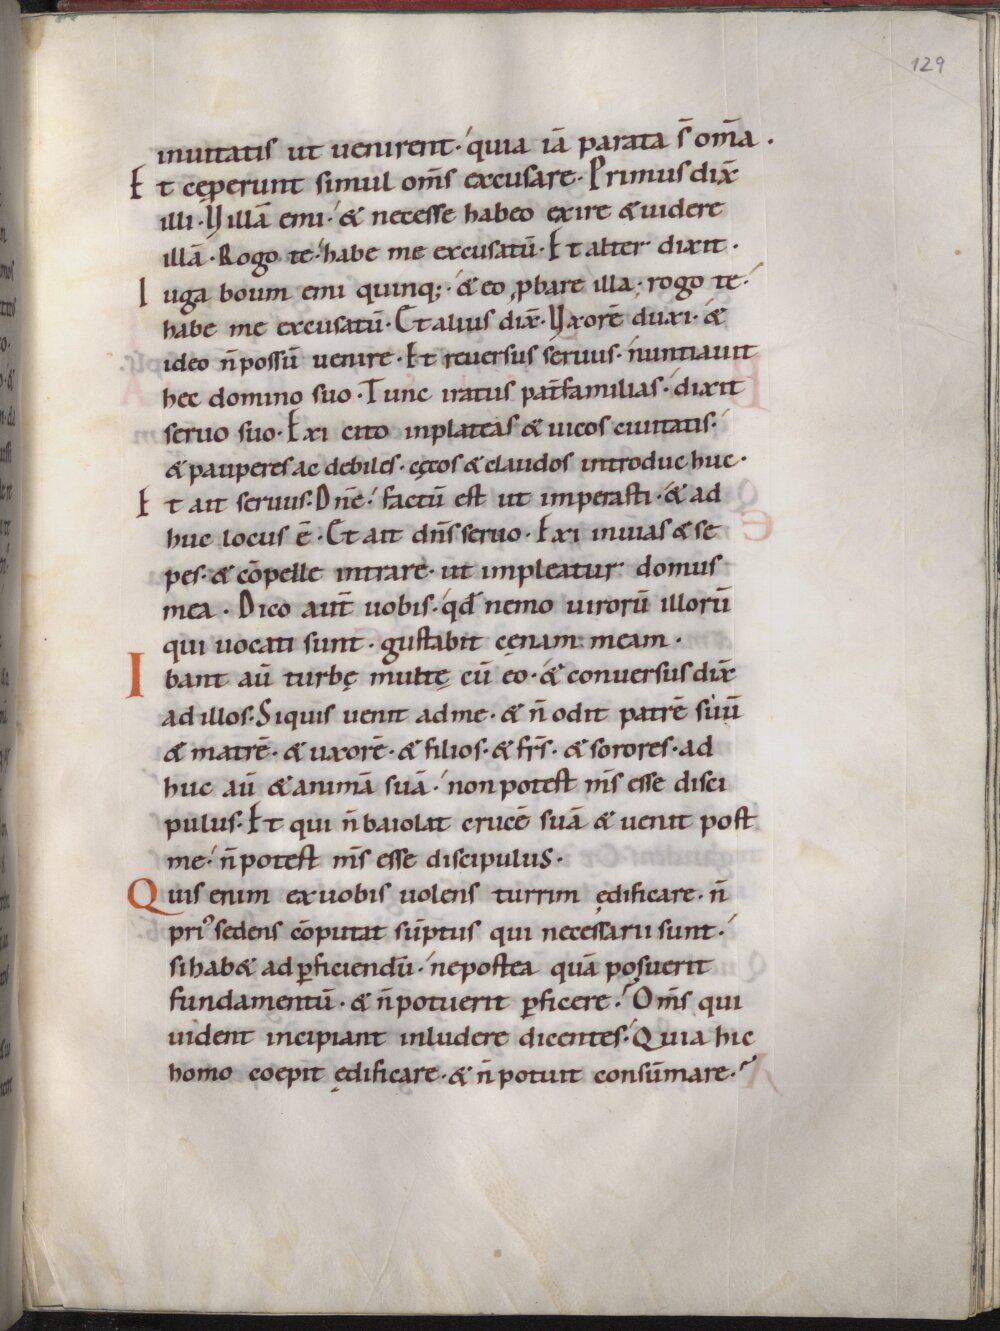 129
inuitatis ut uenirent· quia iā parata s̄ om̄a.
Et cęperunt simul om̄s excusare· Primus dix̄
illi· Villā emi· & necesse habeo exire & uidere
illā· Rogo te· habe me excusatū· Et alter dixit·
Iuga boum emi quinq;· & eo ꝓbare illa· rogo te·
habe me excusatū· Et alius dix̄· Vxorē duxi· &
ideo n̄ possū uenire· Et reuersus seruus· nuntiauit
hec domino suo· Tunc iratus pat̄familias· dixit
seruo suo· Exi cito inplateas & uicos ciuitatis·
& pauperes ac debiles· cęcos & claudos introduc huc·
Et ait seruus· Dn̄e· factū est ut imperasti· & ad
huc locus ē· Et ait dn̄s seruo· Exi inuias & se
pes· & cōpelle intrare· ut impleatur domus
mea· Dico aut̄ uobis· qd̄ nemo uirorū illorū
qui uocati sunt· gustabit cęnam meam·
Ibant aū turbę multę cū eo· & conuersus dix̄
ad illos· Siquis uenit adme· & n̄ odit patrē suū
& matrē· & uxorē· & filios· & fr̄s· & sorores· ad
huc aū & animā suā· non potest m̄s esse disci
pulus· Et qui n̄ baiolat crucē suā & uenit post
me· n̄ potest m̄s esse discipulus·
Quis enim ex uobis uolens turrim ędificare· n̄
pri᾽ sedens cōputat sūptus qui necessarii sunt·
si hab& ad ꝑficiendū· ne postea quā posuerit
fundamentū· & n̄ potuerit ꝑficere· Om̄s qui
uident incipiant inludere dicentes· Quia hic
homo coepit ędificare· & n̄ potuit consūmare·